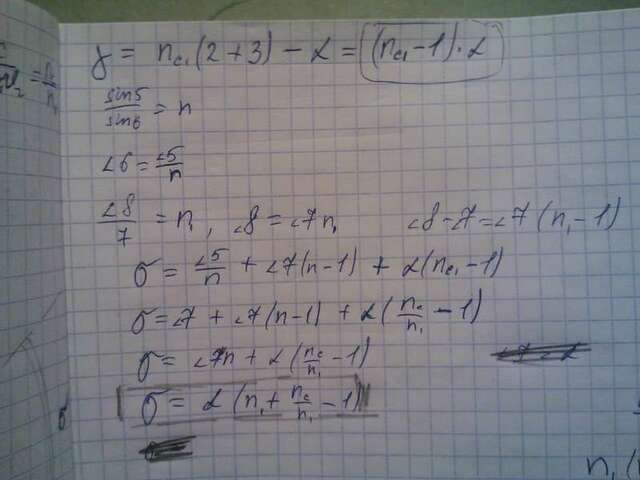 γ = n_c₁(2+3) − α = (n_c₁−1)·α
sin5/sin6 = n
∠6 = ∠5/n
∠8/7 = n₁, ∠8 = ∠7n₁ ∠8−∠7=∠7(n₁−1)
σ = ∠5/n + ∠7(n−1) + α(n_c₁−1)
σ = ∠7 + ∠7(n−1) + α(n_c/n₁ − 1)
σ = ∠7n + α(n_c/n₁ −1)
σ = α(n₁ + n_c/n₁ − 1)
n₁(